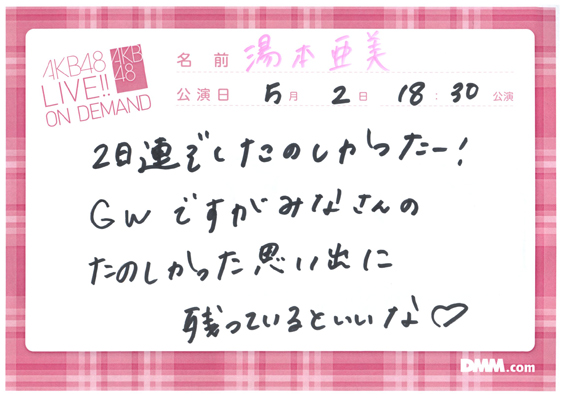 AKB48
LIVE!!
ON DEMAND
AKB
48
名前 湯本亜美
公演日 5月 2日 18:30 公演
2日連ぞくたのしかったー!
GWですがみなさんの
たのしかった思い出に
残っているといいな♡
DMM.com